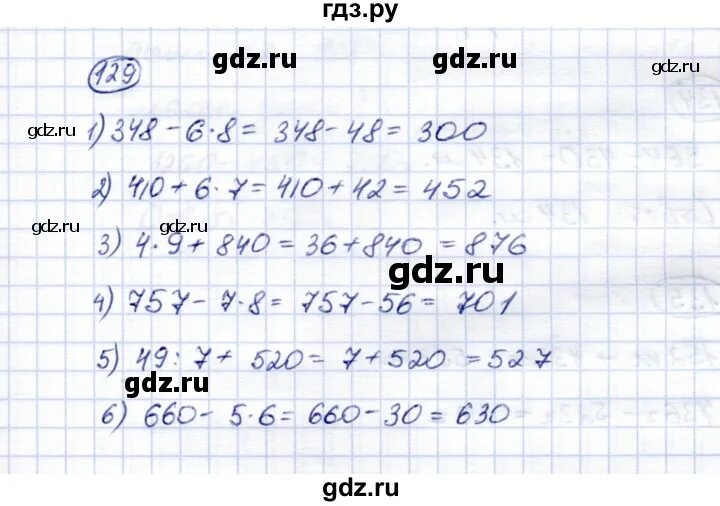 гдз.ру
gdz.ru gdz.ru
129 gdz.ru
gdz.ru 1) 348 - 6·8 = 348 - 48 = 300
2) 410 + 6·7 = 410 + 42 = 452
gdz.ru gdz.ru
3) 4·9 + 840 = 36 + 840 = 876
gdz.ru
4) 757 - 7·8 = 757 - 56 = 701
5) 49 : 7 + 520 = 7 + 520 = 527
gdz.ru
6) 660 - 5·6 = 660 - 30 = 630
gdz.ru